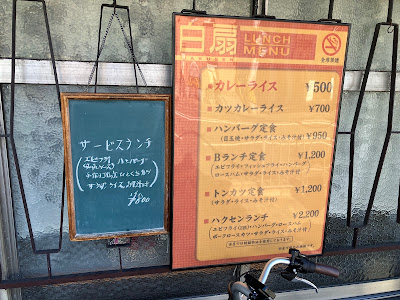 白扇 LUNCH MENU
HAKUSEN
全席禁煙
カレーライス ¥500
カツカレーライス ¥700
ハンバーグ定食 ¥950
(目玉焼・サラダ・ライス・みそ汁付)
Bランチ定食 ¥1,200
(エビフライ・フィッシュフライ・ハンバーグ
ロースハム・サラダ・ライス・みそ汁付)
トンカツ定食 ¥1,200
(サラダ・ライス・みそ汁付)
ハクセンランチ ¥2,200
(エビフライ(2本)・ハンバーグ・ロースハム
ポークロースカツ・サラダ・ライス・みそ汁付)
サービスランチ
エビフライ ハンバーグ
ひとくちカツ
サラダ ライス
¥800